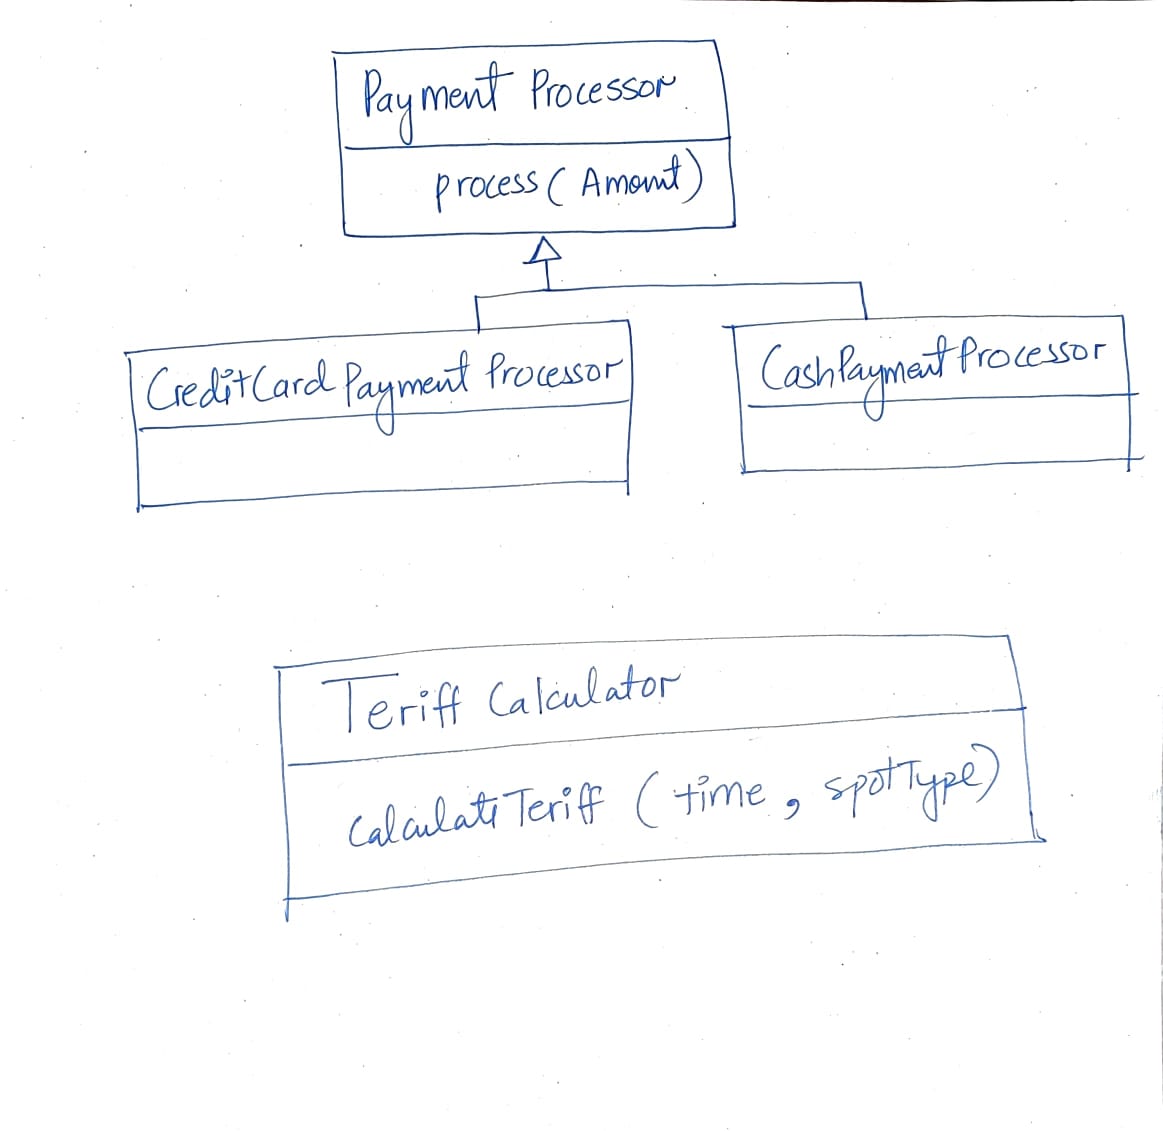 Payment Processor
process (Amount)
CreditCard Payment Processor
CashPayment Processor
Teriff Calculator
CalculateTeriff (time, spotType)